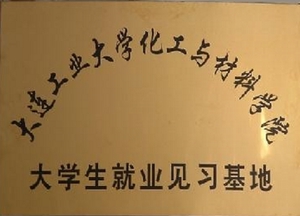 大连工业大学化工与材料学院
大学生就业见习基地